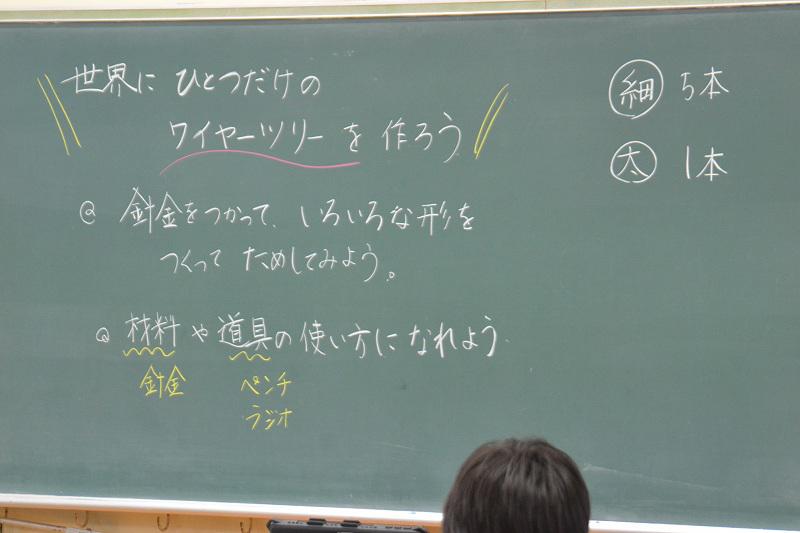 世界に ひとつだけの
ワイヤーツリーを作ろう
◎ 針金をつかって、いろいろな形を
つくって ためしてみよう。
◎ 材料や道具の使い方になれよう.
針金 ペンチ
ラジオ
細 5本
太 1本